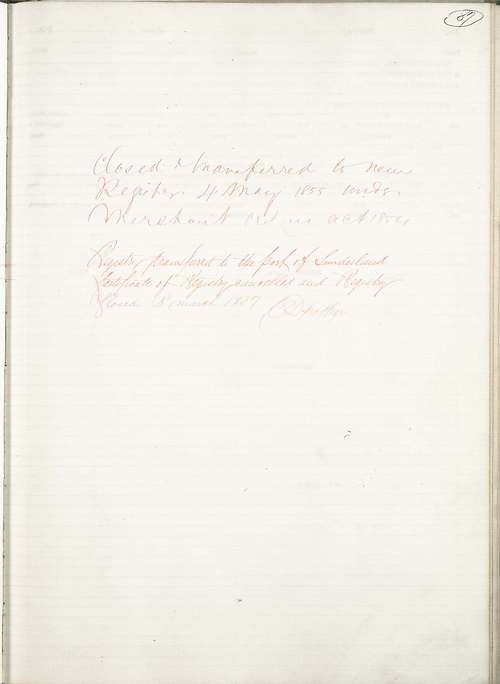 87
Closed & transferred to new
Register 4 May 1855 under
Merchant act 1854
Registry transferred to the port of Sunderland
Certificate of Registry cancelled and Registry
Closed March 1857